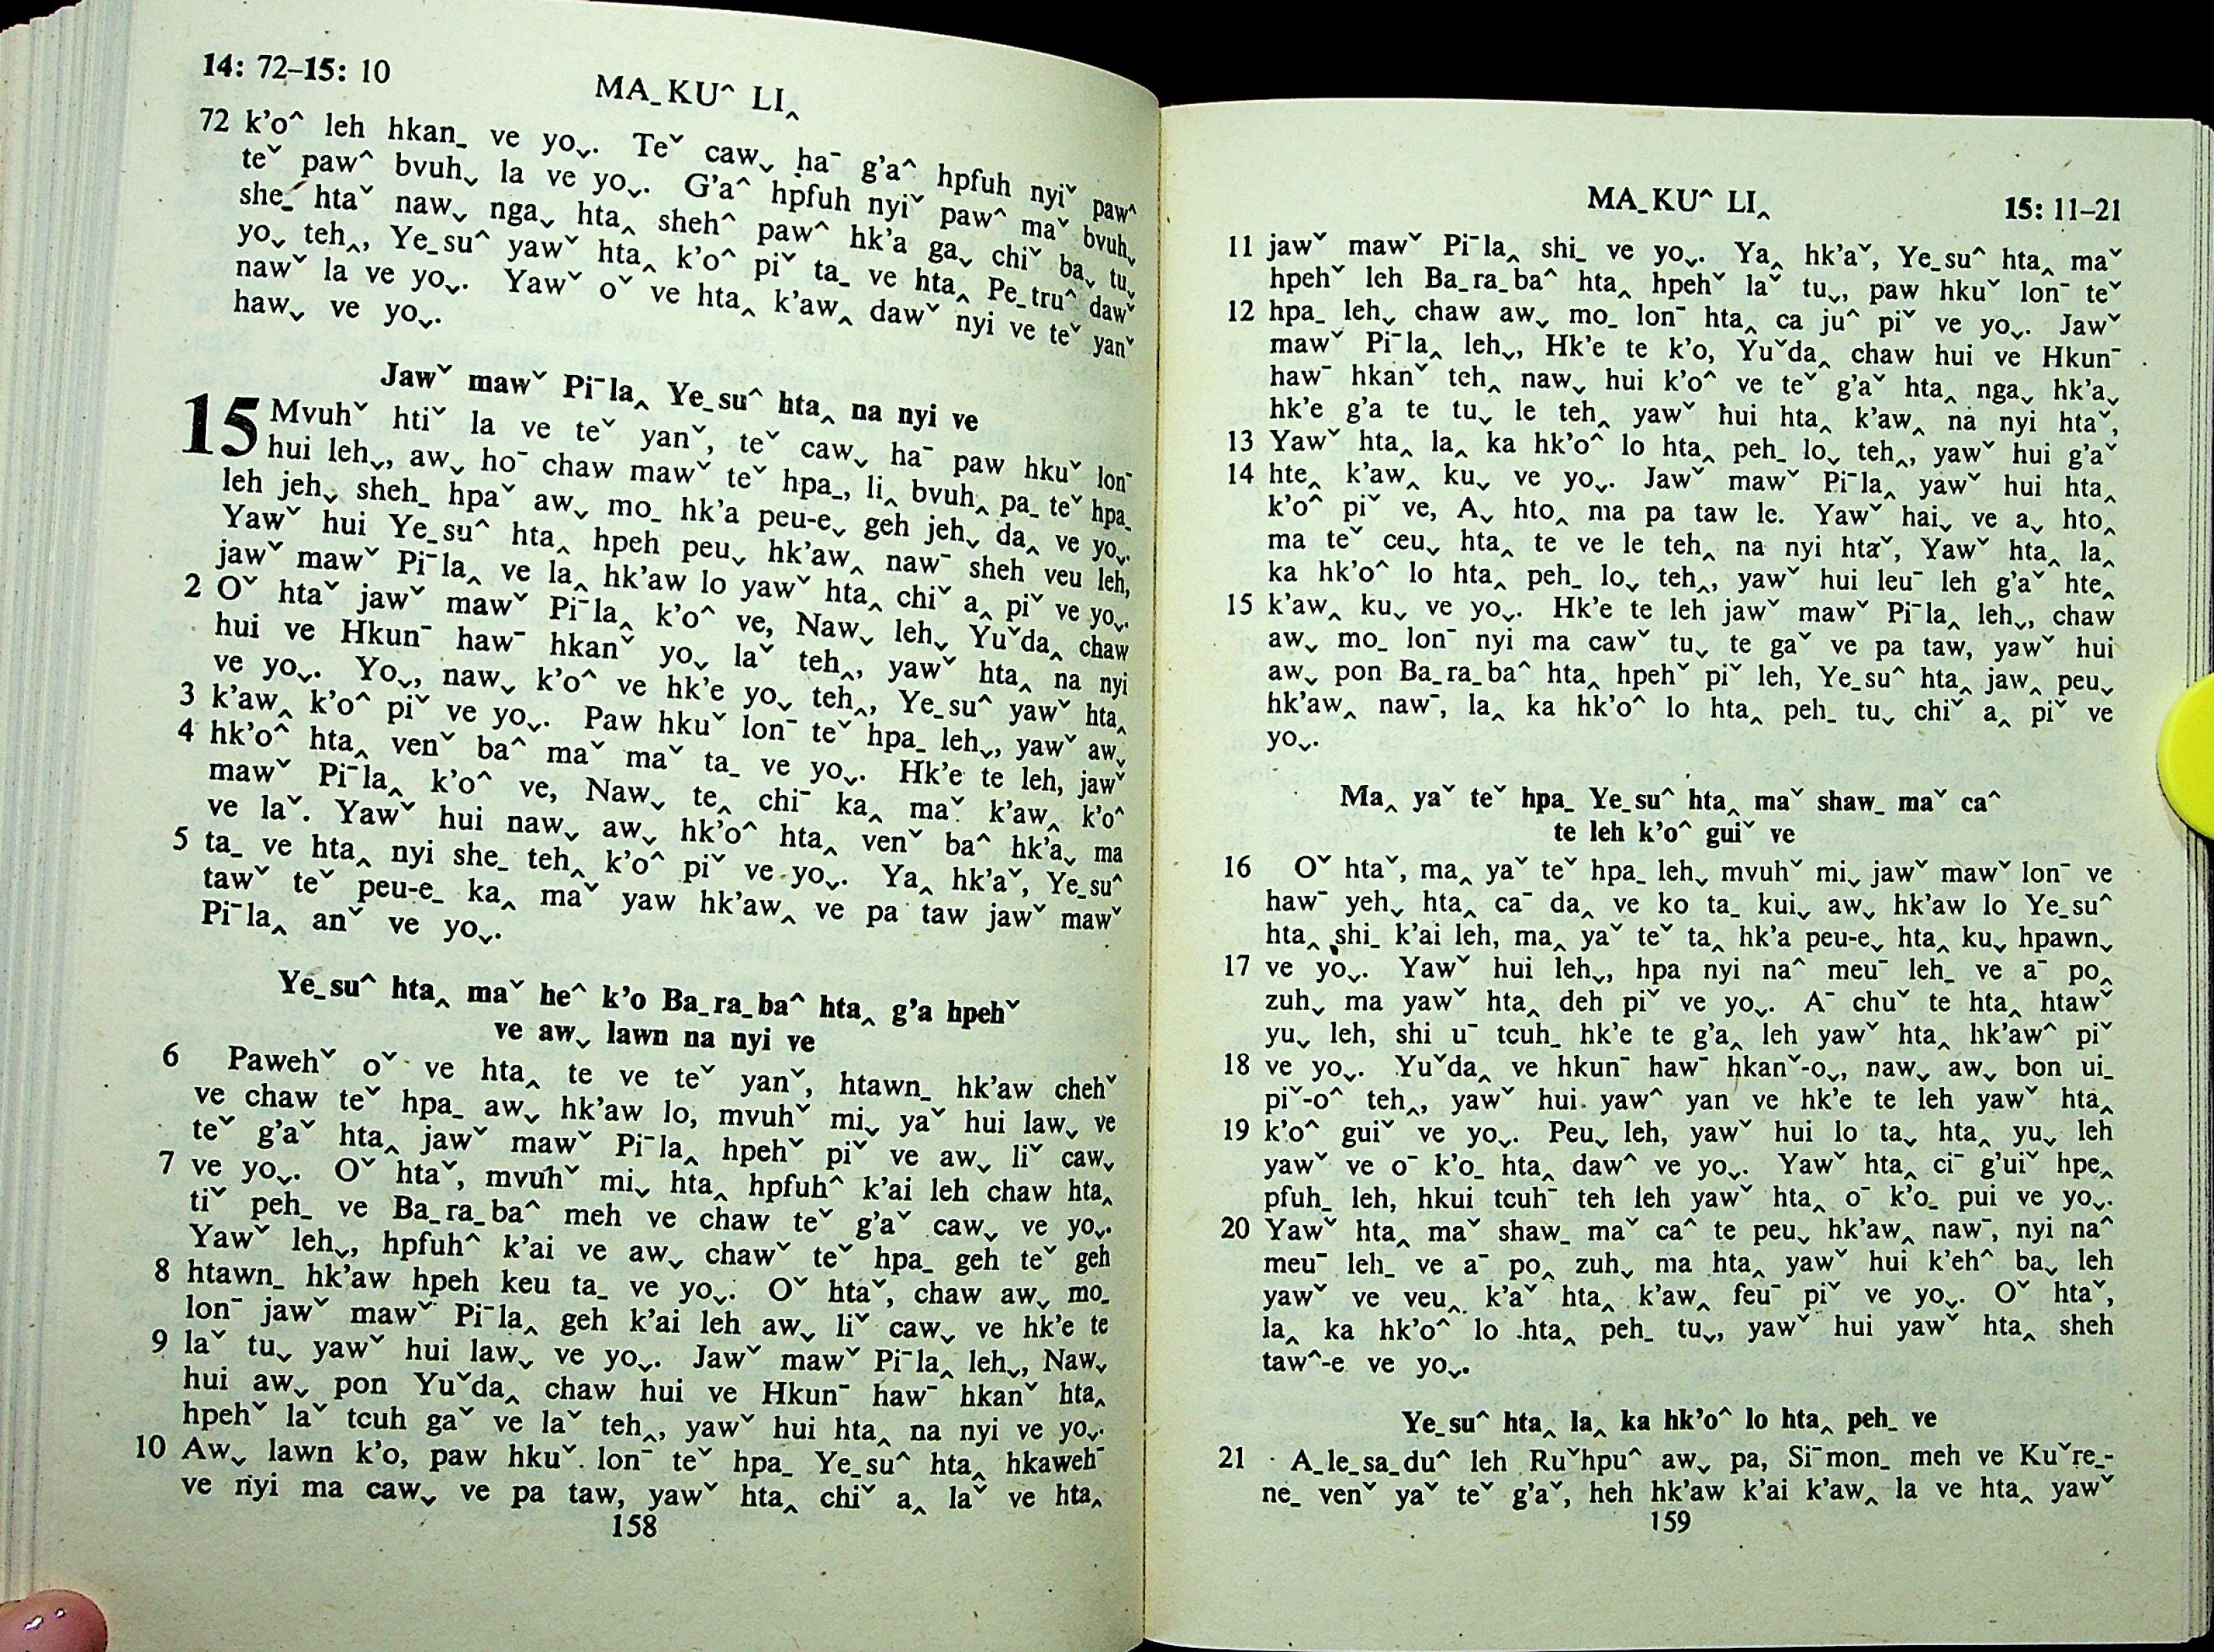 14: 72–15: 10
MA_KUˆ LI‸
72 k'oˆ leh hkan_ ve yoˬ. Teˇ cawˬ haˉ g'aˆ hpfuh nyiˇ pawˆ
teˇ pawˆ bvuhˬ la ve yoˬ. G'aˆ hpfuh nyiˇ pawˆ maˇ bvuhˬ
she_ htaˇ nawˬ ngaˬ hta‸ shehˆ pawˆ hk'a gaˬ chiˇ baˬ tuˬ
yoˬ teh‸, Ye_suˆ yawˇ hta‸ k'oˆ piˇ ta_ ve hta‸ Pe_truˆ dawˇ
nawˇ la ve yoˬ. Yawˇ oˇ ve hta‸ k'aw‸ dawˇ nyi ve teˇ yanˇ
hawˬ ve yoˬ.
Jawˇ mawˇ Piˉla‸ Ye_suˆ hta‸ na nyi ve
15 Mvuhˇ htiˇ la ve teˇ yanˇ, teˇ cawˬ haˉ paw hkuˇ lonˉ
hui lehˬ, awˬ hoˉ chaw mawˇ teˇ hpa_, li‸ bvuh‸ pa_ teˇ hpa_
leh jehˬ sheh_ hpaˇ awˬ mo_ hk'a peu-eˬ geh jehˬ da‸ ve yoˬ.
Yawˇ hui Ye_suˆ hta‸ hpeh peuˬ hk'aw‸ nawˉ sheh veu leh,
jawˇ mawˇ Piˉla‸ ve la‸ hk'aw lo yawˇ hta‸ chiˇ a‸ piˇ ve yoˬ.
2 Oˇ htaˇ jawˇ mawˇ Piˉla‸ k'oˆ ve, Nawˬ lehˬ, Yuˇda‸ chaw
hui ve Hkunˉ hawˉ hkanˇ yoˬ laˇ teh‸, yawˇ hta‸ na nyi
ve yoˬ. Yoˬ, nawˬ k'oˆ ve hk'e yoˬ teh‸, Ye_suˆ yawˇ hta‸
3 k'aw‸ k'oˆ piˇ ve yoˬ. Paw hkuˇ lonˉ teˇ hpa_ lehˬ, yawˇ awˬ
4 hk'oˆ hta‸ venˇ baˆ maˇ maˇ ta_ ve yoˬ. Hk'e te leh, jawˇ
mawˇ Piˉla‸ k'oˆ ve, Nawˬ te‸ chiˉ ka‸ maˇ k'aw‸ k'oˆ
ve laˇ. Yawˇ hui nawˬ awˬ hk'oˆ hta‸ venˇ baˆ hk'aˬ ma
5 ta_ ve hta‸ nyi she_ teh‸ k'oˆ piˇ ve yoˬ. Ya‸ hk'aˇ, Ye_suˆ
tawˇ teˇ peu-e_ ka‸ maˇ yaw hk'aw‸ ve pa taw jawˇ mawˇ
Piˉla‸ anˇ ve yoˬ.
Ye_suˆ hta‸ maˇ heˆ k'o Ba_ra_baˆ hta‸ g'a hpehˇ
ve awˬ lawn na nyi ve
6 Pawehˇ oˇ ve hta‸ te ve teˇ yanˇ, htawn_ hk'aw chehˇ
ve chaw teˇ hpa_ awˬ hk'aw lo, mvuhˇ miˬ yaˇ hui lawˬ ve
teˇ g'aˇ hta‸ jawˇ mawˇ Piˉla‸ hpehˇ piˇ ve awˬ liˇ cawˬ
7 ve yoˬ. Oˇ htaˇ, mvuhˇ miˬ hta‸ hpfuhˆ k'ai leh chaw hta‸
tiˇ peh_ ve Ba_ra_baˆ meh ve chaw teˇ g'aˇ cawˬ ve yoˬ.
Yawˇ lehˬ, hpfuhˆ k'ai ve awˬ chawˇ teˇ hpa_ geh teˇ geh
8 htawn_ hk'aw hpeh keu ta_ ve yoˬ. Oˇ htaˇ, chaw awˬ mo_
lonˉ jawˇ mawˇ Piˉla‸ geh k'ai leh awˬ liˇ cawˬ ve hk'e te
9 laˇ tuˬ yawˇ hui lawˬ ve yoˬ. Jawˇ mawˇ Piˉla‸ lehˬ, Nawˬ
hui awˬ pon Yuˇda‸ chaw hui ve Hkunˉ hawˉ hkanˇ hta‸
hpehˇ laˇ tcuh gaˇ ve laˇ teh‸, yawˇ hui hta‸ na nyi ve yoˬ.
10 Awˬ lawn k'o, paw hkuˇ lonˉ teˇ hpa_ Ye_suˆ hta‸ hkawehˉ
ve nyi ma cawˬ ve pa taw, yawˇ hta‸ chiˇ a‸ laˇ ve hta‸
158
MA_KUˆ LI‸
15: 11–21
11 jawˇ mawˇ Piˉla‸ shi_ ve yoˬ. Ya‸ hk'aˇ, Ye_suˆ hta‸ maˇ
hpehˇ leh Ba_ra_baˆ hta‸ hpehˇ laˇ tuˬ, paw hkuˇ lonˉ teˇ
12 hpa_ lehˬ chaw awˬ mo_ lonˉ hta‸ ca juˆ piˇ ve yoˬ. Jawˇ
mawˇ Piˉla‸ lehˬ, Hk'e te k'o, Yuˇda‸ chaw hui ve Hkunˉ
hawˉ hkanˇ teh‸ nawˬ hui k'oˆ ve teˇ g'aˇ hta‸ ngaˬ hk'aˬ
hk'e g'a te tuˬ le teh‸ yawˇ hui hta‸ k'aw‸ na nyi htaˇ,
13 Yawˇ hta‸ la‸ ka hk'oˆ lo hta‸ peh_ loˬ teh‸, yawˇ hui g'aˇ
14 hte‸ k'aw‸ kuˬ ve yoˬ. Jawˇ mawˇ Piˉla‸ yawˇ hui hta‸
k'oˆ piˇ ve, Aˬ hto‸ ma pa taw le. Yawˇ haiˬ ve aˬ hto‸
ma teˇ ceuˬ hta‸ te ve le teh‸ na nyi htaˇ, Yawˇ hta‸ la‸
ka hk'oˆ lo hta‸ peh_ loˬ teh‸, yawˇ hui leuˉ leh g'aˇ hte‸
15 k'aw‸ kuˬ ve yoˬ. Hk'e te leh jawˇ mawˇ Piˉla‸ lehˬ, chaw
awˬ mo_ lonˉ nyi ma cawˇ tuˬ te gaˇ ve pa taw, yawˇ hui
awˬ pon Ba_ra_baˆ hta‸ hpehˇ piˇ leh, Ye_suˆ hta‸ jaw‸ peuˬ
hk'aw‸ nawˉ, la‸ ka hk'oˆ lo hta‸ peh_ tuˬ chiˇ a‸ piˇ ve
yoˬ.
Ma‸ yaˇ teˇ hpa_ Ye_suˆ hta‸ maˇ shaw_ maˇ caˆ
te leh k'oˆ guiˇ ve
16 Oˇ htaˇ, ma‸ yaˇ teˇ hpa_ lehˬ mvuhˇ miˬ jawˇ mawˇ lonˉ ve
hawˉ yehˬ hta‸ caˉ da‸ ve ko ta_ kuiˬ awˬ hk'aw lo Ye_suˆ
hta‸ shi_ k'ai leh, ma‸ yaˇ teˇ ta‸ hk'a peu-eˬ hta‸ kuˬ hpawnˬ
17 ve yoˬ. Yawˇ hui lehˬ, hpa nyi naˆ meuˉ leh_ ve aˉ po‸
zuhˬ ma yawˇ hta‸ deh piˇ ve yoˬ. Aˉ chuˇ te hta‸ htawˇ
yuˬ leh, shi uˉ tcuh_ hk'e te g'a‸ leh yawˇ hta‸ hk'awˆ piˇ
18 ve yoˬ. Yuˇda‸ ve hkunˉ hawˉ hkanˇ-oˬ, nawˬ awˬ bon ui_
piˇ-oˆ teh‸, yawˇ hui yawˆ yan ve hk'e te leh yawˇ hta‸
19 k'oˆ guiˇ ve yoˬ. Peuˬ leh, yawˇ hui lo taˬ hta‸ yuˬ leh
yawˇ ve oˉ k'o_ hta‸ dawˆ ve yoˬ. Yawˇ hta‸ ciˉ g'uiˇ hpe‸
pfuh_ leh, hkui tcuhˉ teh leh yawˇ hta‸ oˉ k'o_ pui ve yoˬ.
20 Yawˇ hta‸ maˇ shaw_ maˇ caˆ te peuˬ hk'aw‸ nawˉ, nyi naˆ
meuˉ leh_ ve aˉ po‸ zuhˬ ma hta‸ yawˇ hui k'ehˆ baˬ leh
yawˇ ve veu‸ k'aˇ hta‸ k'aw‸ feuˉ piˇ ve yoˬ. Oˇ htaˇ,
la‸ ka hk'oˆ lo hta‸ peh_ tuˬ, yawˇ hui yawˇ hta‸ sheh
tawˆ-e ve yoˬ.
Ye_suˆ hta‸ la‸ ka hk'oˆ lo hta‸ peh_ ve
21 A_le_sa_duˆ leh Ruˇhpuˆ awˬ pa, Siˉmon_ meh ve Kuˇre_-
ne_ venˇ yaˇ teˇ g'aˇ, heh hk'aw k'ai k'aw‸ la ve hta‸ yawˇ
159